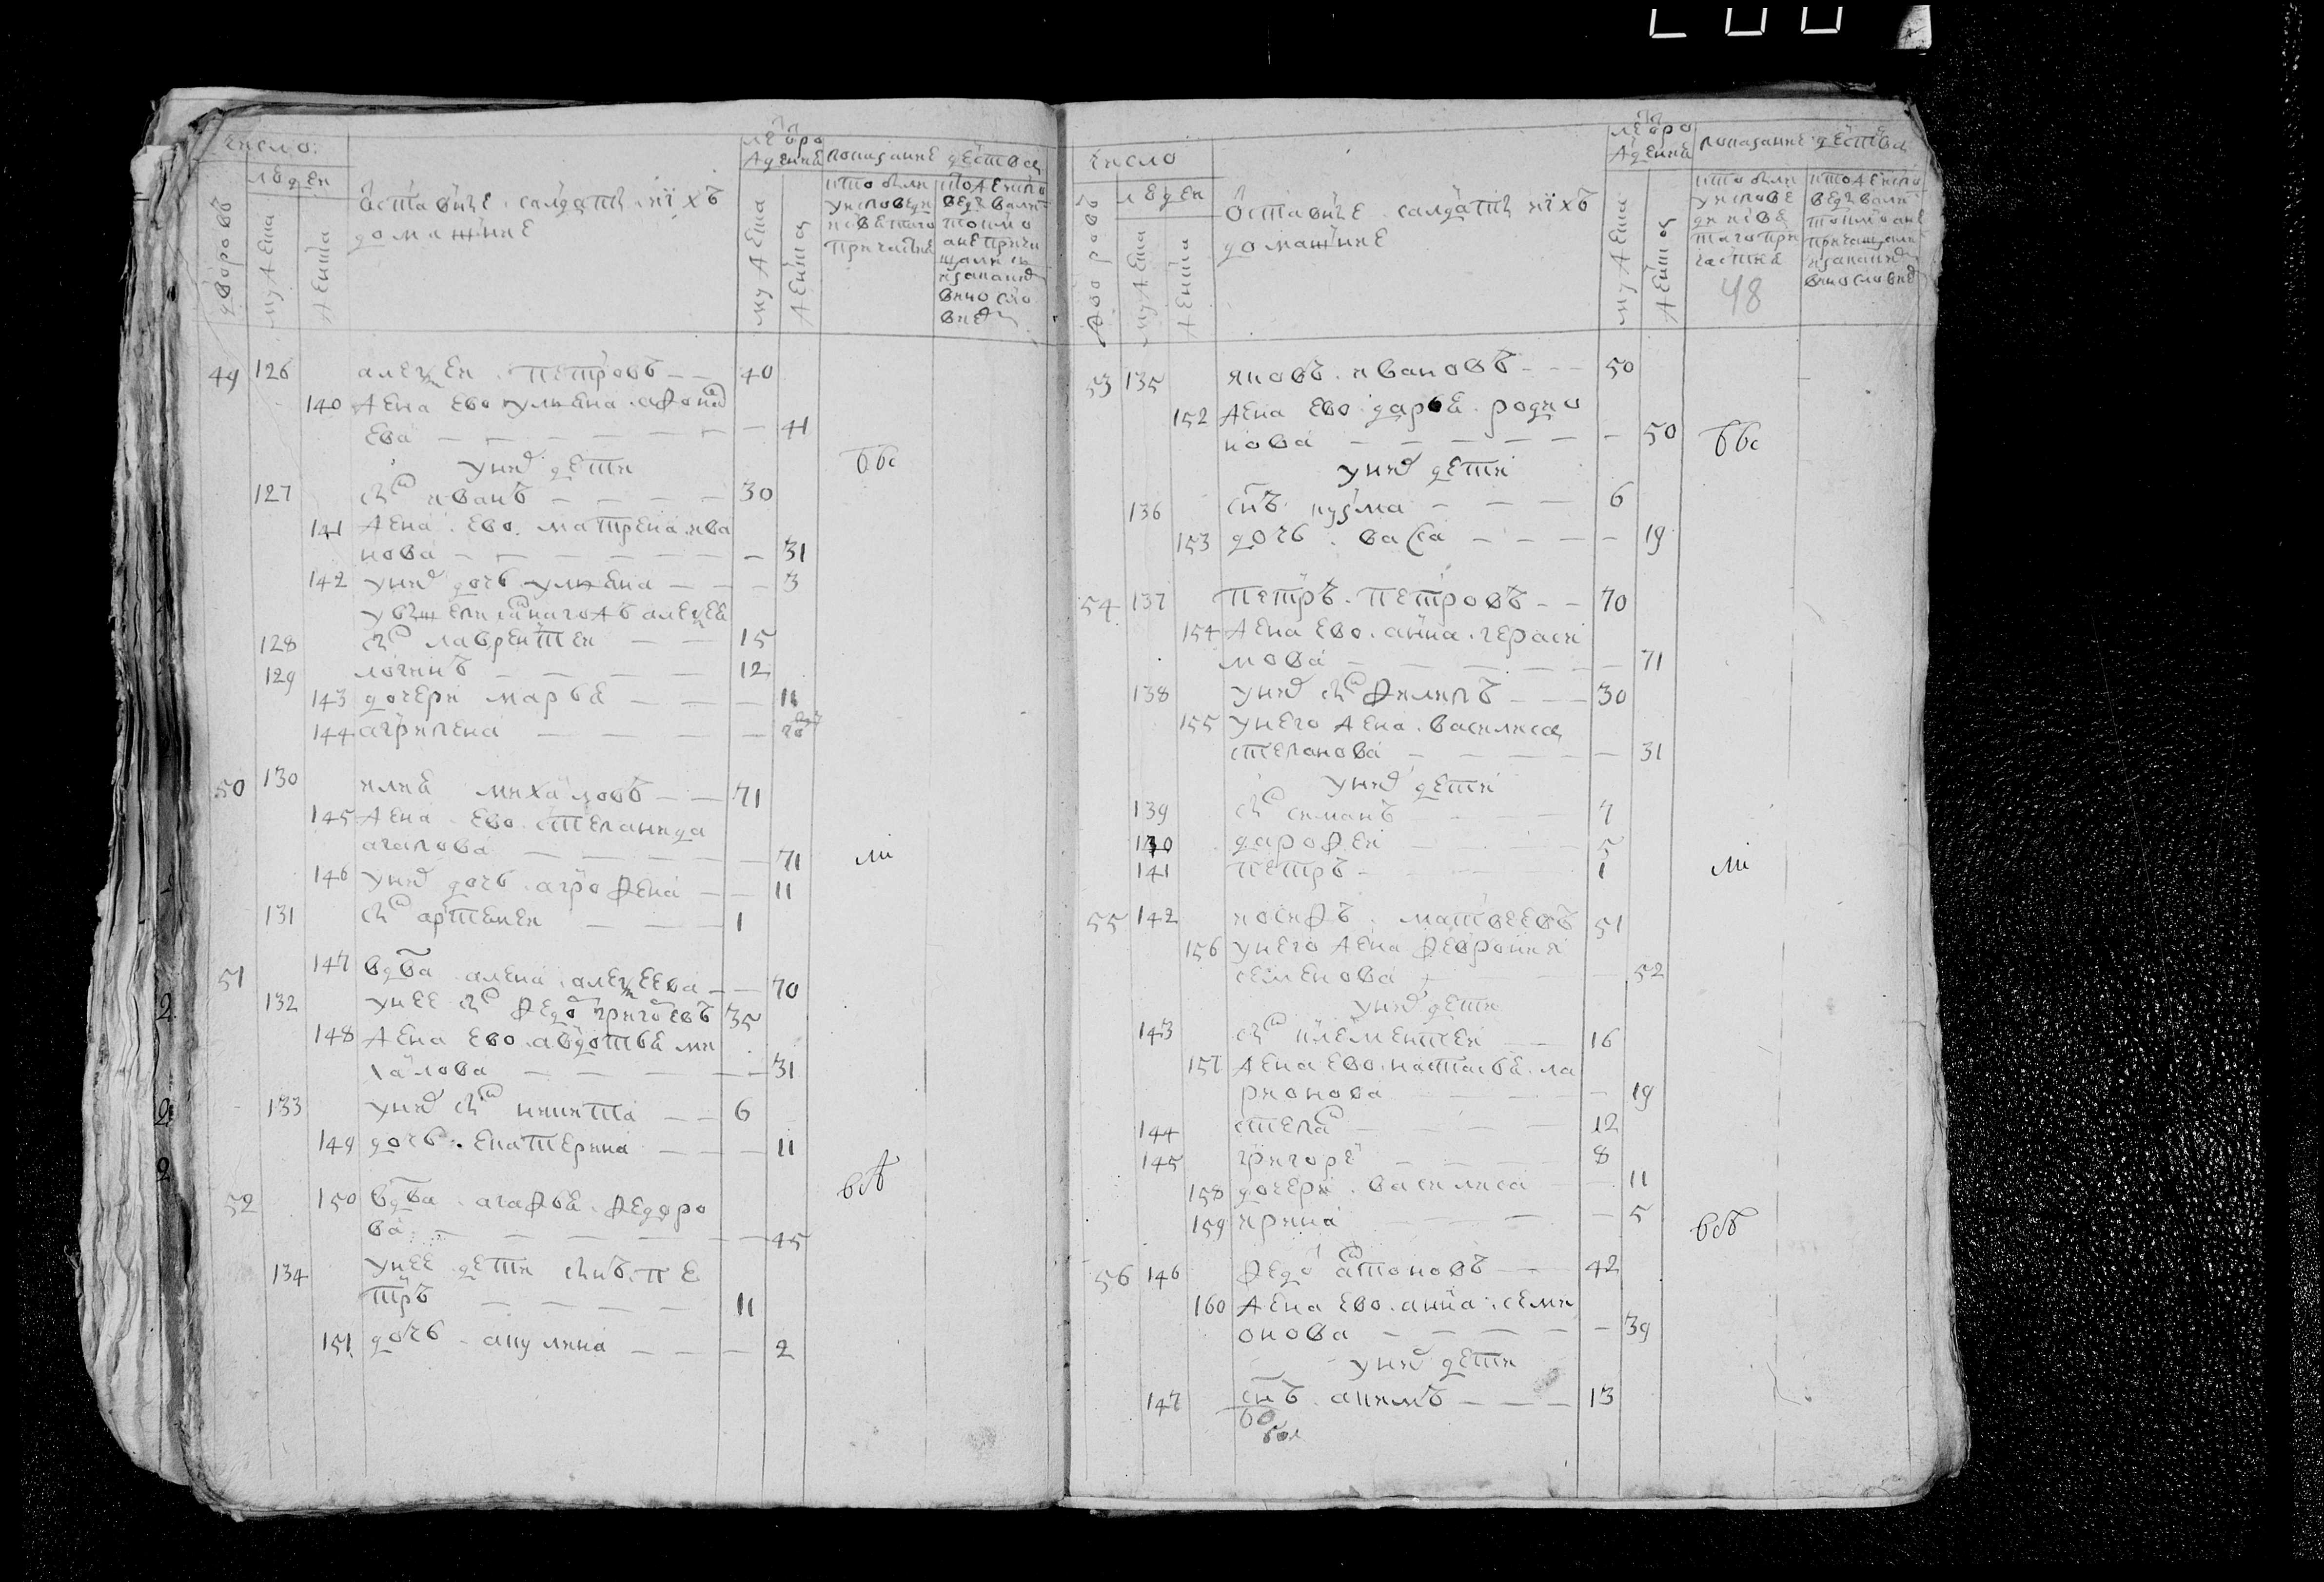 число:
людеи
дворовъ
муженa
женска
Ѿставные салдаты и ихъ
домашние
лѣ ѿ ро
жения
мужена
женска
показание действа
кто были
у исповеди
и святаго
причастия
кто же испо
ведывали
токмо
а не прича
щались
и за какия
виносло
вия
49 126 алеѯеи петровъ — — 40
140 жена ево ульяна афона
ева — — — — — — 41
у них дети
ббс
127 сн̃ъ иванъ — — — — 30
141 жена ево матрена ива
нова — — — — — — 31
142 у них дочь ульяна — — — 3
у вышеписаннагожъ алеѯея
128 сн̃ъ лаврентеи — — 15
129 логинъ — — — — 12
143 дочери марья — — — 11
144 агрипена — — — — год
50 130 илья михаиловъ — — 71
145 жена ево степанида
агапова — — — — — 71
ми
146 у них дочь агрофена — — 11
131 сн̃ъ артемеи — — — 1
51 147 вдва алена алеѯеева — — 70
132 у нее сн̃ъ федоръ григоревъ 35
148 жена ево авдотья ми
хаилова — — — — — 31
133 у них сн̃ъ никита — — 6
149 дочь екатерина — — — 11
вбъ
52 150 вдва агафья федоро
ва — — — — — — 45
134 у нее дети сынъ пе
тръ — — — — 11
151 дочь акулина — — — 2
число
людеи
дворовъ
мужена
женска
Ѿставные салдаты и ихъ
домашние
лѣ ѿ ро
жения
мужена
женска
показание действа
кто были
у испове
ди и свя
таго при
частия
48
кто же испо
ведывали
токмо а не
причащали
и за какия
винословия
53 135 яковъ ивановъ — — — 50
152 жена ево дарья родио
нова — — — — — — 50
ббс
у них дети
136 сн̃ъ кузма — — — 6
153 дочь васса — — — — 19
54 137 петръ петровъ — — 70
154 жена ево анна гераси
мова — — — — — — 71
138 у них сн̃ъ филипъ — — — 30
155 у него жена василиса
степанова — — — — — 31
у них дети
139 сн̃ъ симанъ — — — 7
140 дарофеи — — — 5
141 петръ — — — — 1
ми
55 142 иосифъ матвеевъ 51
156 у него жена феврония
семенова — — — 52
у них дети
143 сн̃ъ клементеи — — 16
157 жена ево настасья ла
рионова — — — — — 19
144 степан — — — — 12
145 григореи — — — — 8
158 дочери василиса — — 11
159 ирина — — — — 5
вбъ
56 146 федоръ антоновъ — — 42
160 жена ево анна семи
онова — — — — — 39
у них дети
147 сн̃ъ акимъ — — — 13